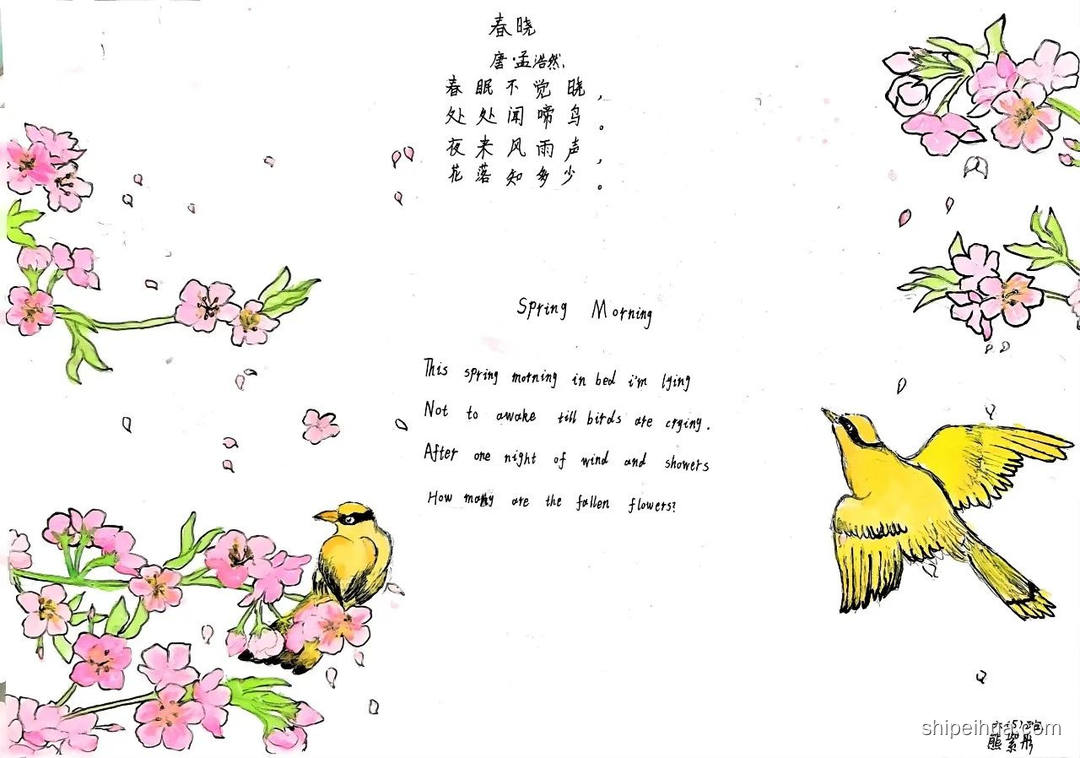 春晓
唐·孟浩然
春眠不觉晓，
处处闻啼鸟。
夜来风雨声，
花落知多少。
Spring Morning
This spring morning in bed i'm lying
Not to awake till birds are crying.
After one night of wind and showers
How many are the fallen flowers?
shipeihua.com
熊絮彤